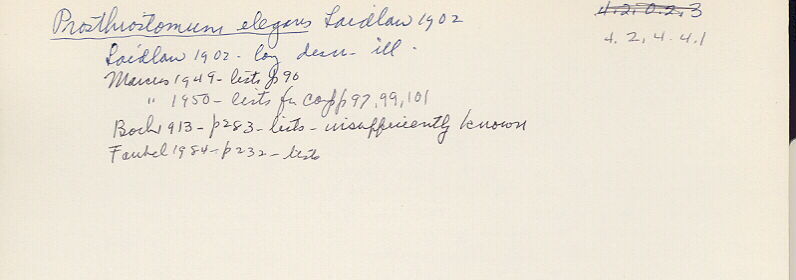 Prosthiostomum elegans Laidlaw 1902
4.2.0.2.3
4.2.4.4.1
Laidlaw 1902 - loy descr - ill.
Marcus 1949 - lists p 90
" 1950 - lists for comp p 97, 99, 101
Bock 1913 - p 283 - lists - insufficiently known
Faubel 1984 - p 232 - lists